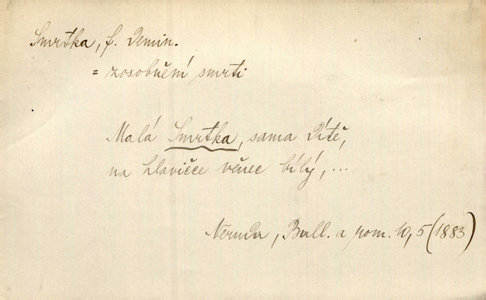 Smrtka, f. Demin.
= zosobnění smrti
Malá Smrtka, sama Dítě,
na hlavičce věnec bílý, ...
Neruda, Ball. a rom. 10, 5 (1883)